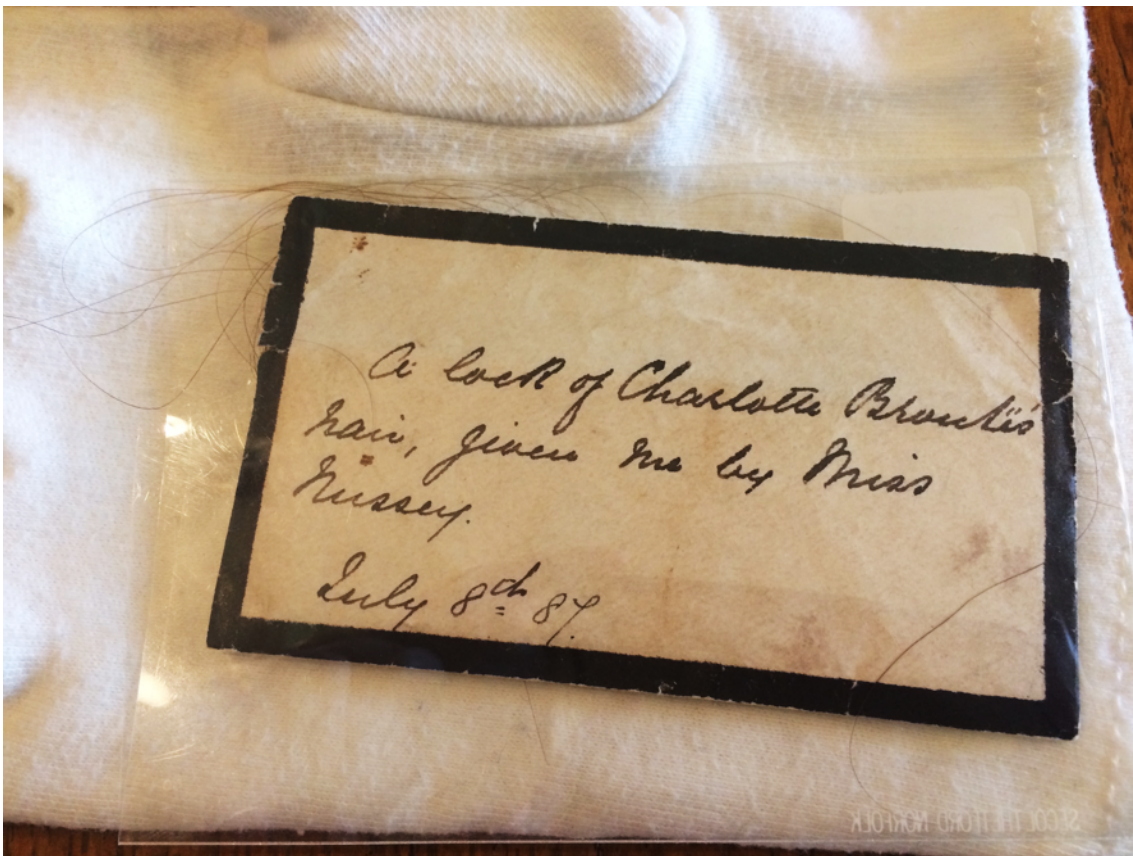 A lock of Charlotte Brontë's
hair, given me by Miss
Nussey.
July 8th 87.
SECOL THETFORD NORFOLK